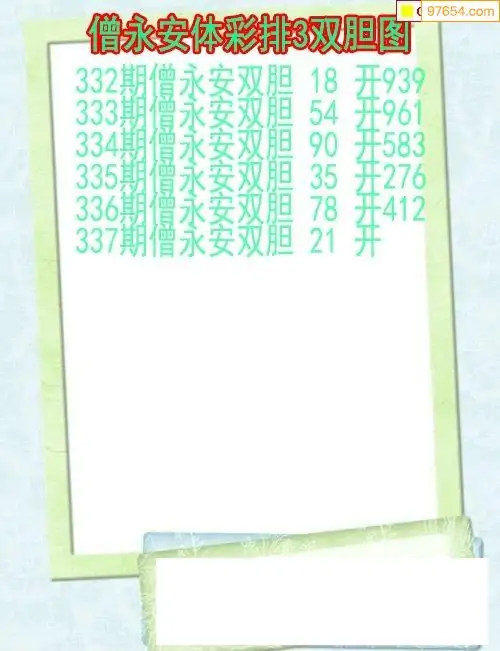 97654.com
僧永安体彩排3双胆图
332期僧永安双胆 18 开939
333期僧永安双胆 54 开961
334期僧永安双胆 90 开583
335期僧永安双胆 35 开276
336期僧永安双胆 78 开412
337期僧永安双胆 21 开